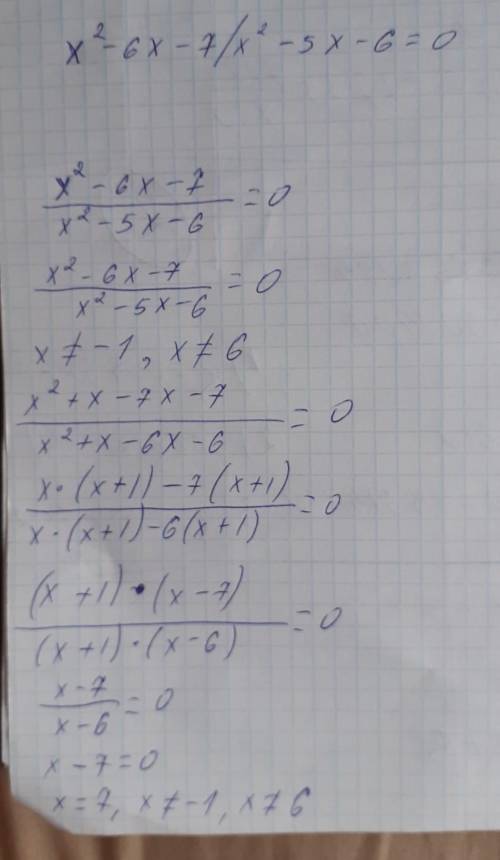 x² - 6x - 7/x² - 5x - 6 = 0
x² - 6x - 7
= 0
x² - 5x - 6
x² - 6x - 7
= 0
x² - 5x - 6
x ≠ -1, x ≠ 6
x² + x - 7x - 7
= 0
x² + x - 6x - 6
x · (x + 1) - 7 (x + 1)
= 0
x · (x + 1) - 6 (x + 1)
(x + 1) · (x - 7)
= 0
(x + 1) · (x - 6)
x - 7
= 0
x - 6
x - 7 = 0
x = 7, x ≠ -1, x ≠ 6